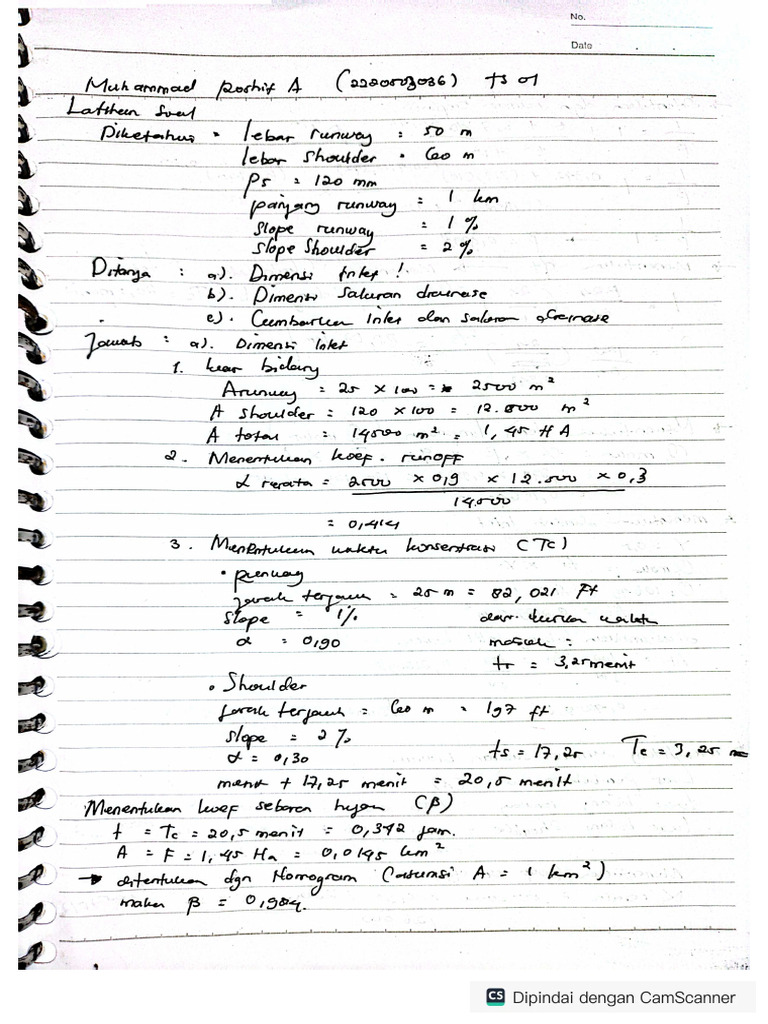 No.
Date
Muhammad Roshif A (2220503036) TS 01
Latihan Soal
Diketahui : lebar runway : 50 m
lebar shoulder : 60 m
Ps : 120 mm
panjang runway = 1 km
slope runway = 1 %
slope shoulder = 2 %
Ditanya : a). Dimensi Inlet !
b). Dimensi Saluran drainase
c). Gambarkan Inlet dan saluran drainase
Jawab : a). Dimensi Inlet
1. Luas bidang
A runway = 25 x 100 = 2500 m²
A shoulder = 120 x 100 = 12.000 m²
A total = 14500 m² = 1,45 HA
2. Menentukan koef. runoff
α rerata = 2500 x 0,9 x 12.000 x 0,3
14.500
= 0,414
3. Menentukan waktu konsentrasi (Tc)
• Runway
Jarak terjauh = 25 m = 82,021 ft
slope = 1% dari durasi waktu
α = 0,90 masuk :
tr = 3,25 menit
• Shoulder
Jarak terjauh = 60 m = 197 ft
slope = 2 %
α = 0,30 ts = 17,25 Tc = 3,25
menit + 17,25 menit = 20,5 menit
Menentukan koef sebaran hujan (β)
t = Tc = 20,5 menit = 0,342 jam.
A = F = 1,45 Ha = 0,0145 km²
→ ditentukan dgn Nomogram (asumsi A = 1 km²)
maka β = 0,984.
CS Dipindai dengan CamScanner